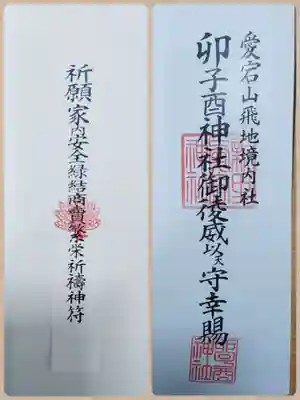 祈願家内安全縁結商賣繁栄祈禱神符
愛宕山飛地境内社
卯子酉神社御稜威以天守幸賜